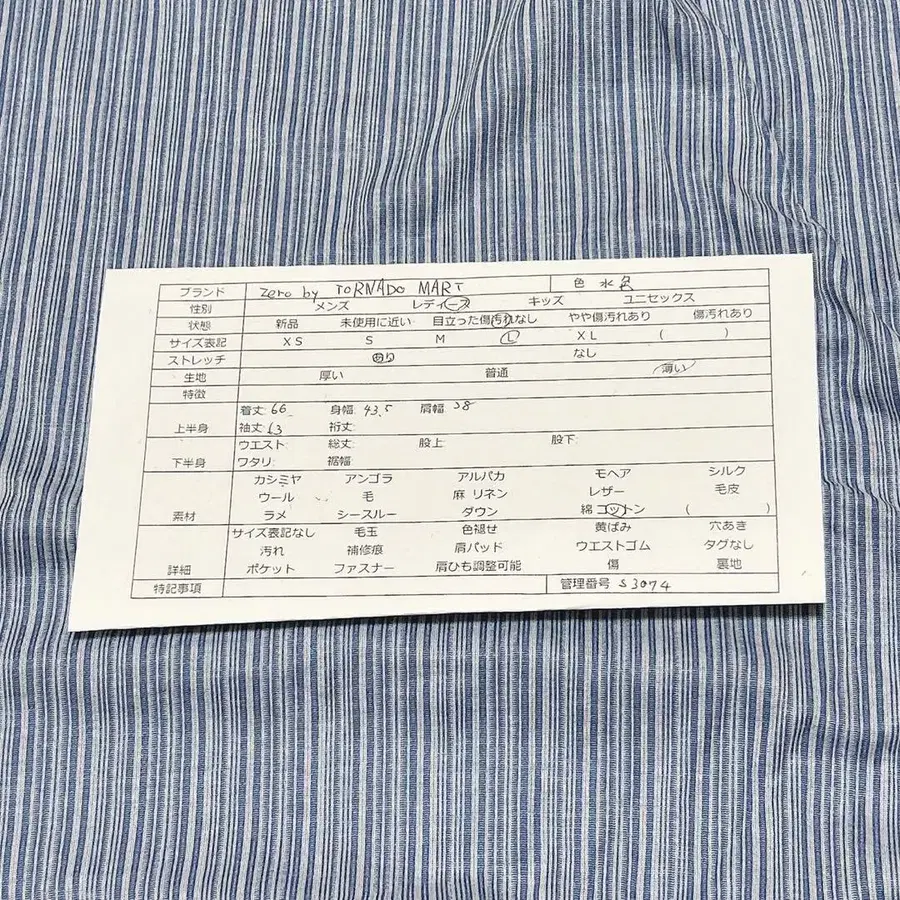 ブランド zero by TORNADO MART 色 水色
性別 メンズ レディース キッズ ユニセックス
状態 新品 未使用に近い 目立った傷汚れなし やや傷汚れあり 傷汚れあり
サイズ表記 XS S M L XL ( )
ストレッチ あり なし
生地 厚い 普通 薄い
特徴
着丈: 66 身幅: 43.5 肩幅: 38
上半身 袖丈: 63 裄丈:
ウエスト: 総丈: 股上: 股下:
下半身 ワタリ: 裾幅:
カシミヤ アンゴラ アルパカ モヘア シルク
ウール 毛 麻 リネン レザー 毛皮
素材 ラメ シースルー ダウン 綿 コットン ( )
サイズ表記なし 毛玉 色褪せ 黄ばみ 穴あき
汚れ 補修痕 肩パッド ウエストゴム タグなし
詳細 ポケット ファスナー 肩ひも調整可能 傷 裏地
特記事項 管理番号 S3074